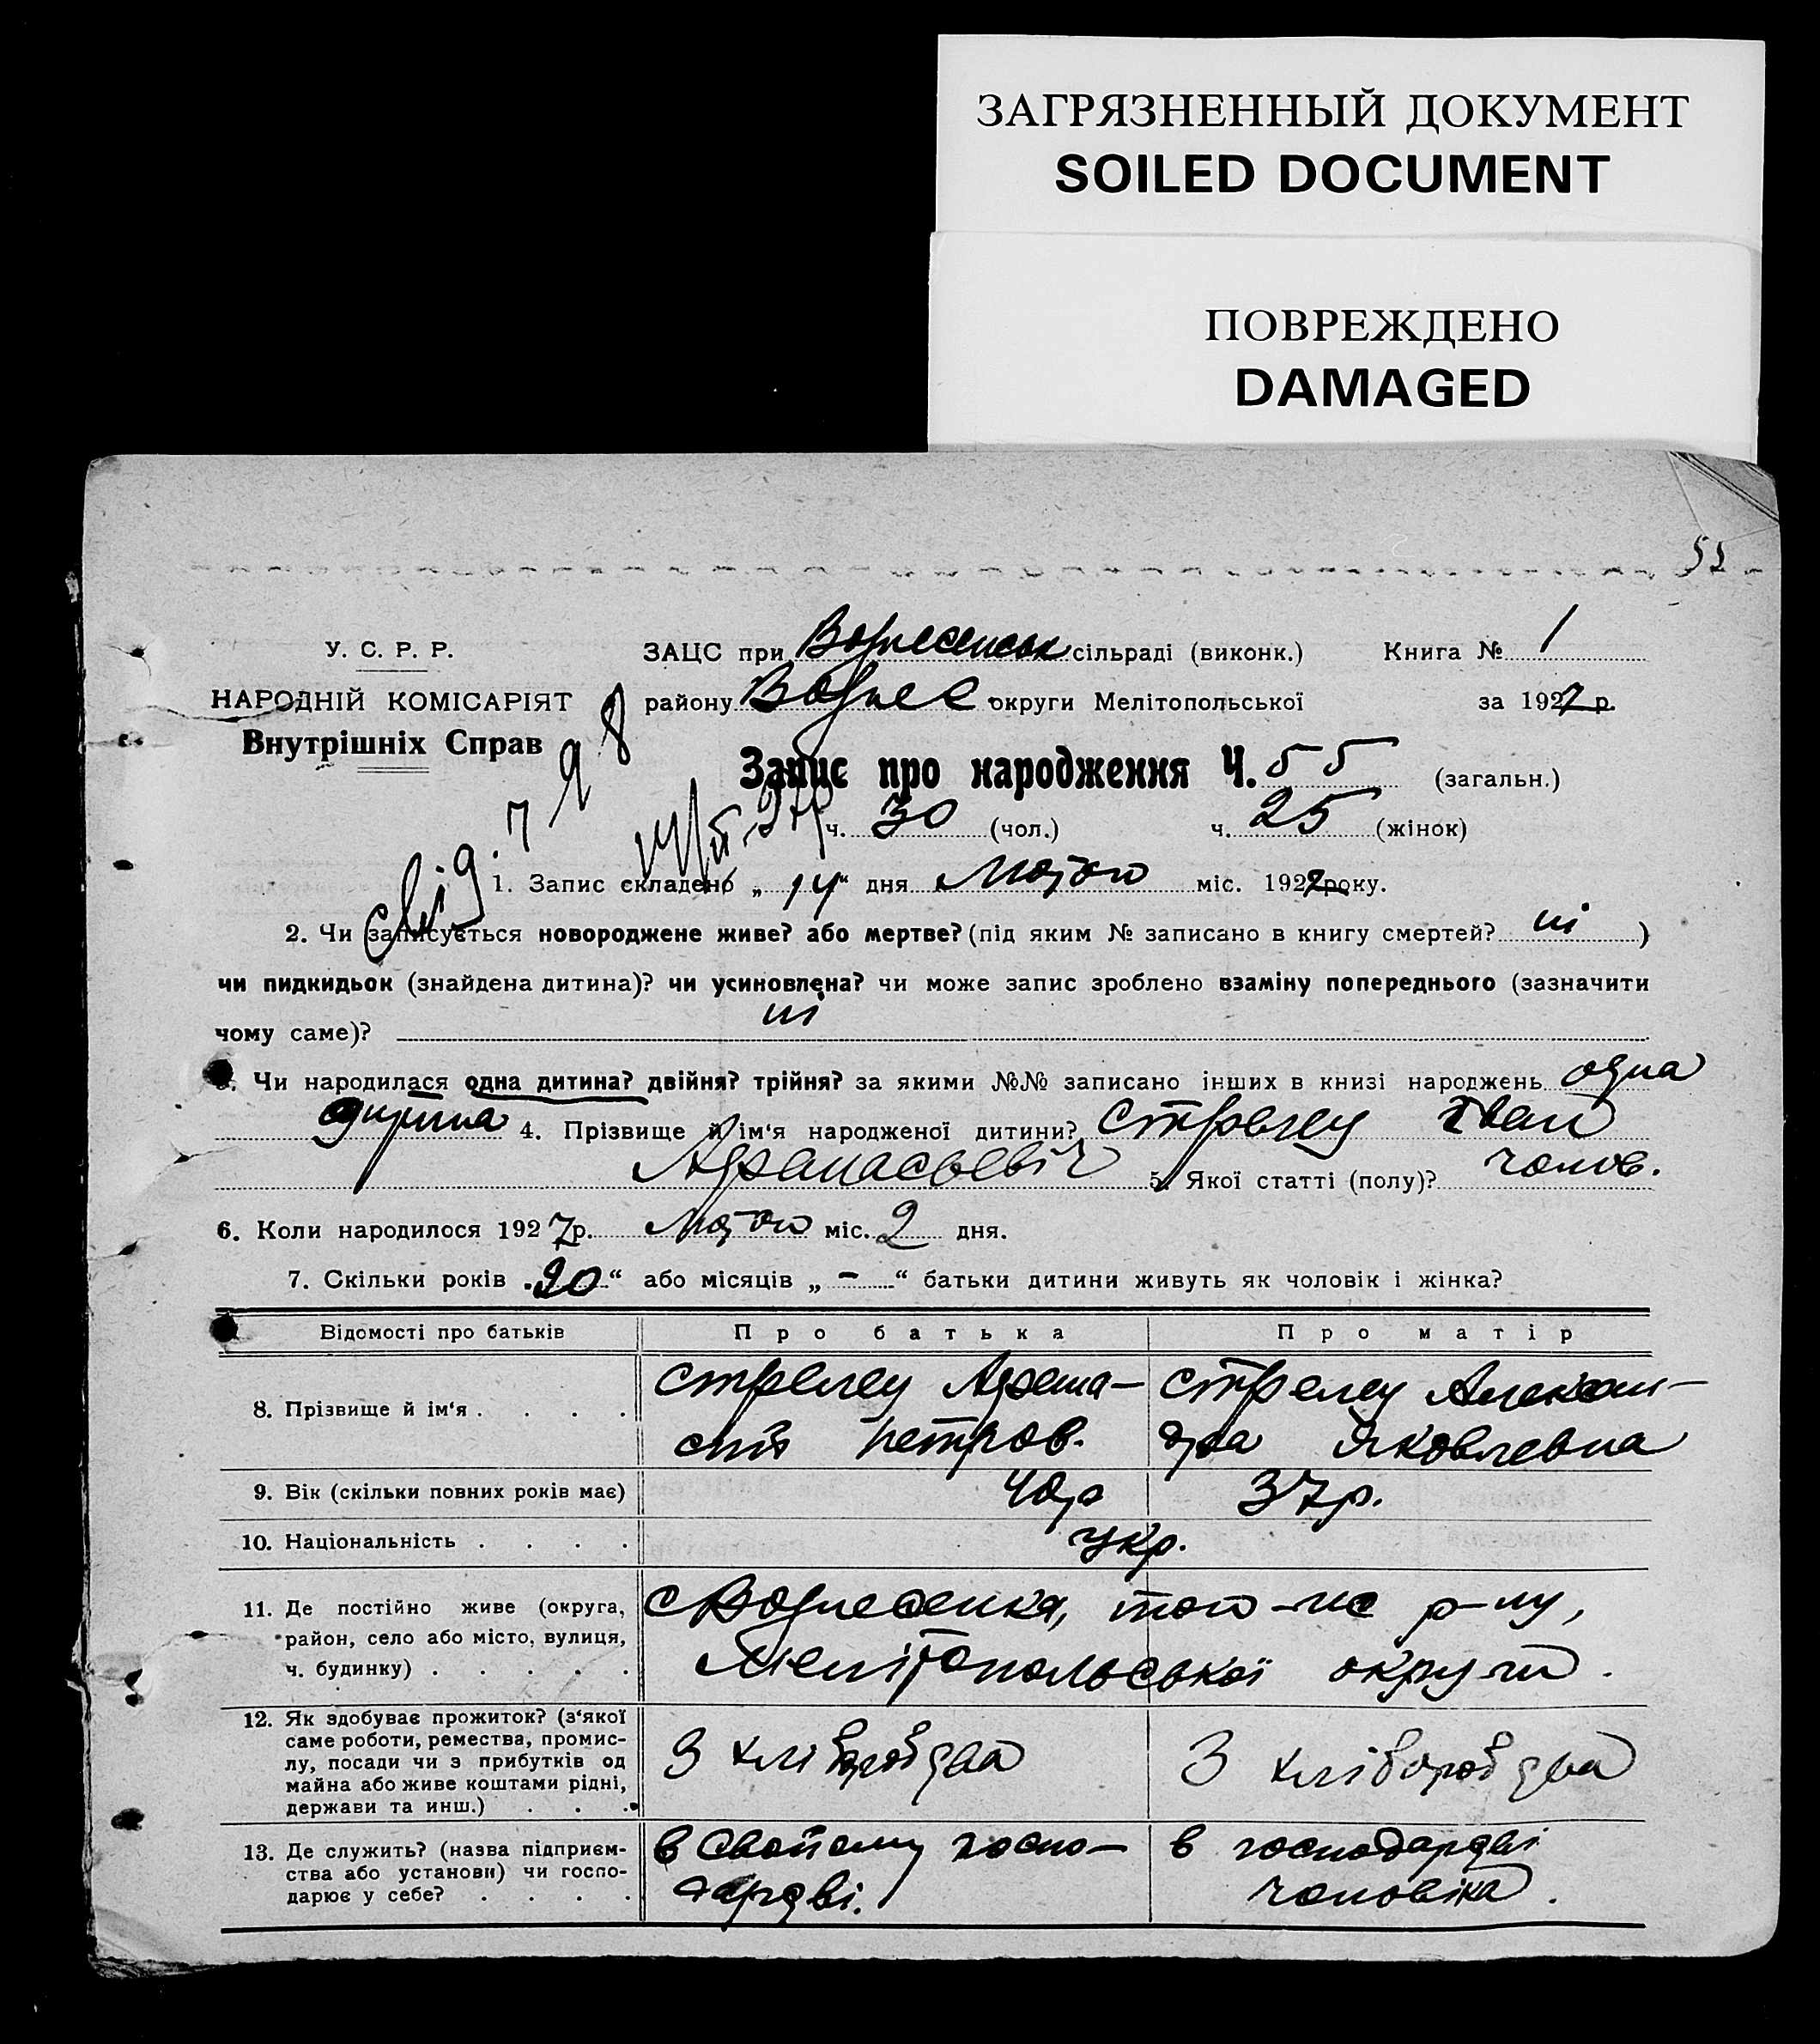 ЗАГРЯЗНЕННЫЙ ДОКУМЕНТ
SOILED DOCUMENT
ПОВРЕЖДЕНО
DAMAGED
У. С. Р. Р.
НАРОДНІЙ КОМІСАРІЯТ
Внутрішніх Справ
ЗАЦС при Вознесенськ сільраді (виконк.) Книга № 1
району Вознес округи Мелітопольської за 1927 р.
Запис про народження Ч. 55 (загальн.)
ч. 30 (чол.) ч. 25 (жінок)
1. Запис складено „ 14 “ дня Лютого міс. 1927 року.
2. Чи записується новороджене живе? або мертве? (під яким № записано в книгу смертей? ні )
чи пидкидьок (знайдена дитина)? чи усиновлена? чи може запис зроблено взаміну попереднього (зазначити
чому саме)? ні
3. Чи народилася одна дитина? двійня? трійня? за якими №№ записано інших в книзі народжень одна
дитина 4. Прізвище й ім‘я народженої дитини? Стрелец Іван
Афанасьевіч 5. Якої статті (полу)? чолов.
6. Коли народилося 1927 р. Лютого міс. 2 дня.
7. Скільки років „ 20 “ або місяців „ - “ батьки дитини живуть як чоловік і жінка?
Відомості про батьків Про батька Про матір
8. Прізвище й ім‘я . . . . Стрелец Афана- Стрелец Алексан-
сій Петров. дра Яковлевна
9. Вік (скільки повних років має) 40 р 37 р.
10. Національність . . . . укр.
11. Де постійно живе (округа, район, село або місто, вулиця, ч. будинку) . . . . . с Вознесенка, того-ж р-ну,
Мелітопольської округи.
12. Як здобуває прожиток? (з‘якої саме роботи, ремества, промислу, посади чи з прибутків од майна або живе коштами рідні, держави та инш.) . . . З хліборобства З хліборобства
13. Де служить? (назва підприємства або установи) чи господарює у себе? . . . . в Свойому госпо- в господарстві
дарстві. чоловіка.